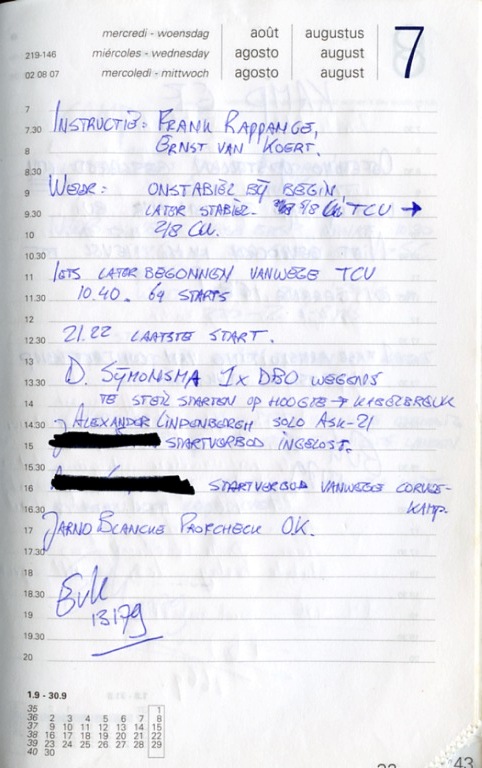 mercredi - woensdag août augustus 7
219-146 miércoles - wednesday agosto august
02 08 07 mercoledi - mittwoch agosto august
7
7.30 INSTRUCTIE: FRANK RAPPANGE,
8 ERNST VAN KOERT.
8.30
9 WEER: ONSTABIEL BIJ BEGIN
9.30 LATER STABIEL. 7/8 CU TCU →
10 2/8 CU.
10.30
11 IETS LATER BEGONNEN VANWEGE TCU
11.30 10.40. 69 STARTS
12
12.30 21.22 LAATSTE START.
13
13.30 D. SIJMONSMA 1x DBO WEGENS
14 TE STEIL STARTEN OP HOOGTE → KABELBREUK
14.30 ALEXANDER LINDENBERGH SOLO ASK-21
15 STARTVERBOD INGELOST.
15.30
16 STARTVERBOD VANWEGE CORVEE-
16.30 KAMP.
17 JARNO BLANCKE PROFCHECK O.K.
17.30
18
18.30 EvK
19 13179
19.30
20
1.9 - 30.9
35 1
36 2 3 4 5 6 7 8
37 9 10 11 12 13 14 15
38 16 17 18 19 20 21 22
39 23 24 25 26 27 28 29
40 30
43